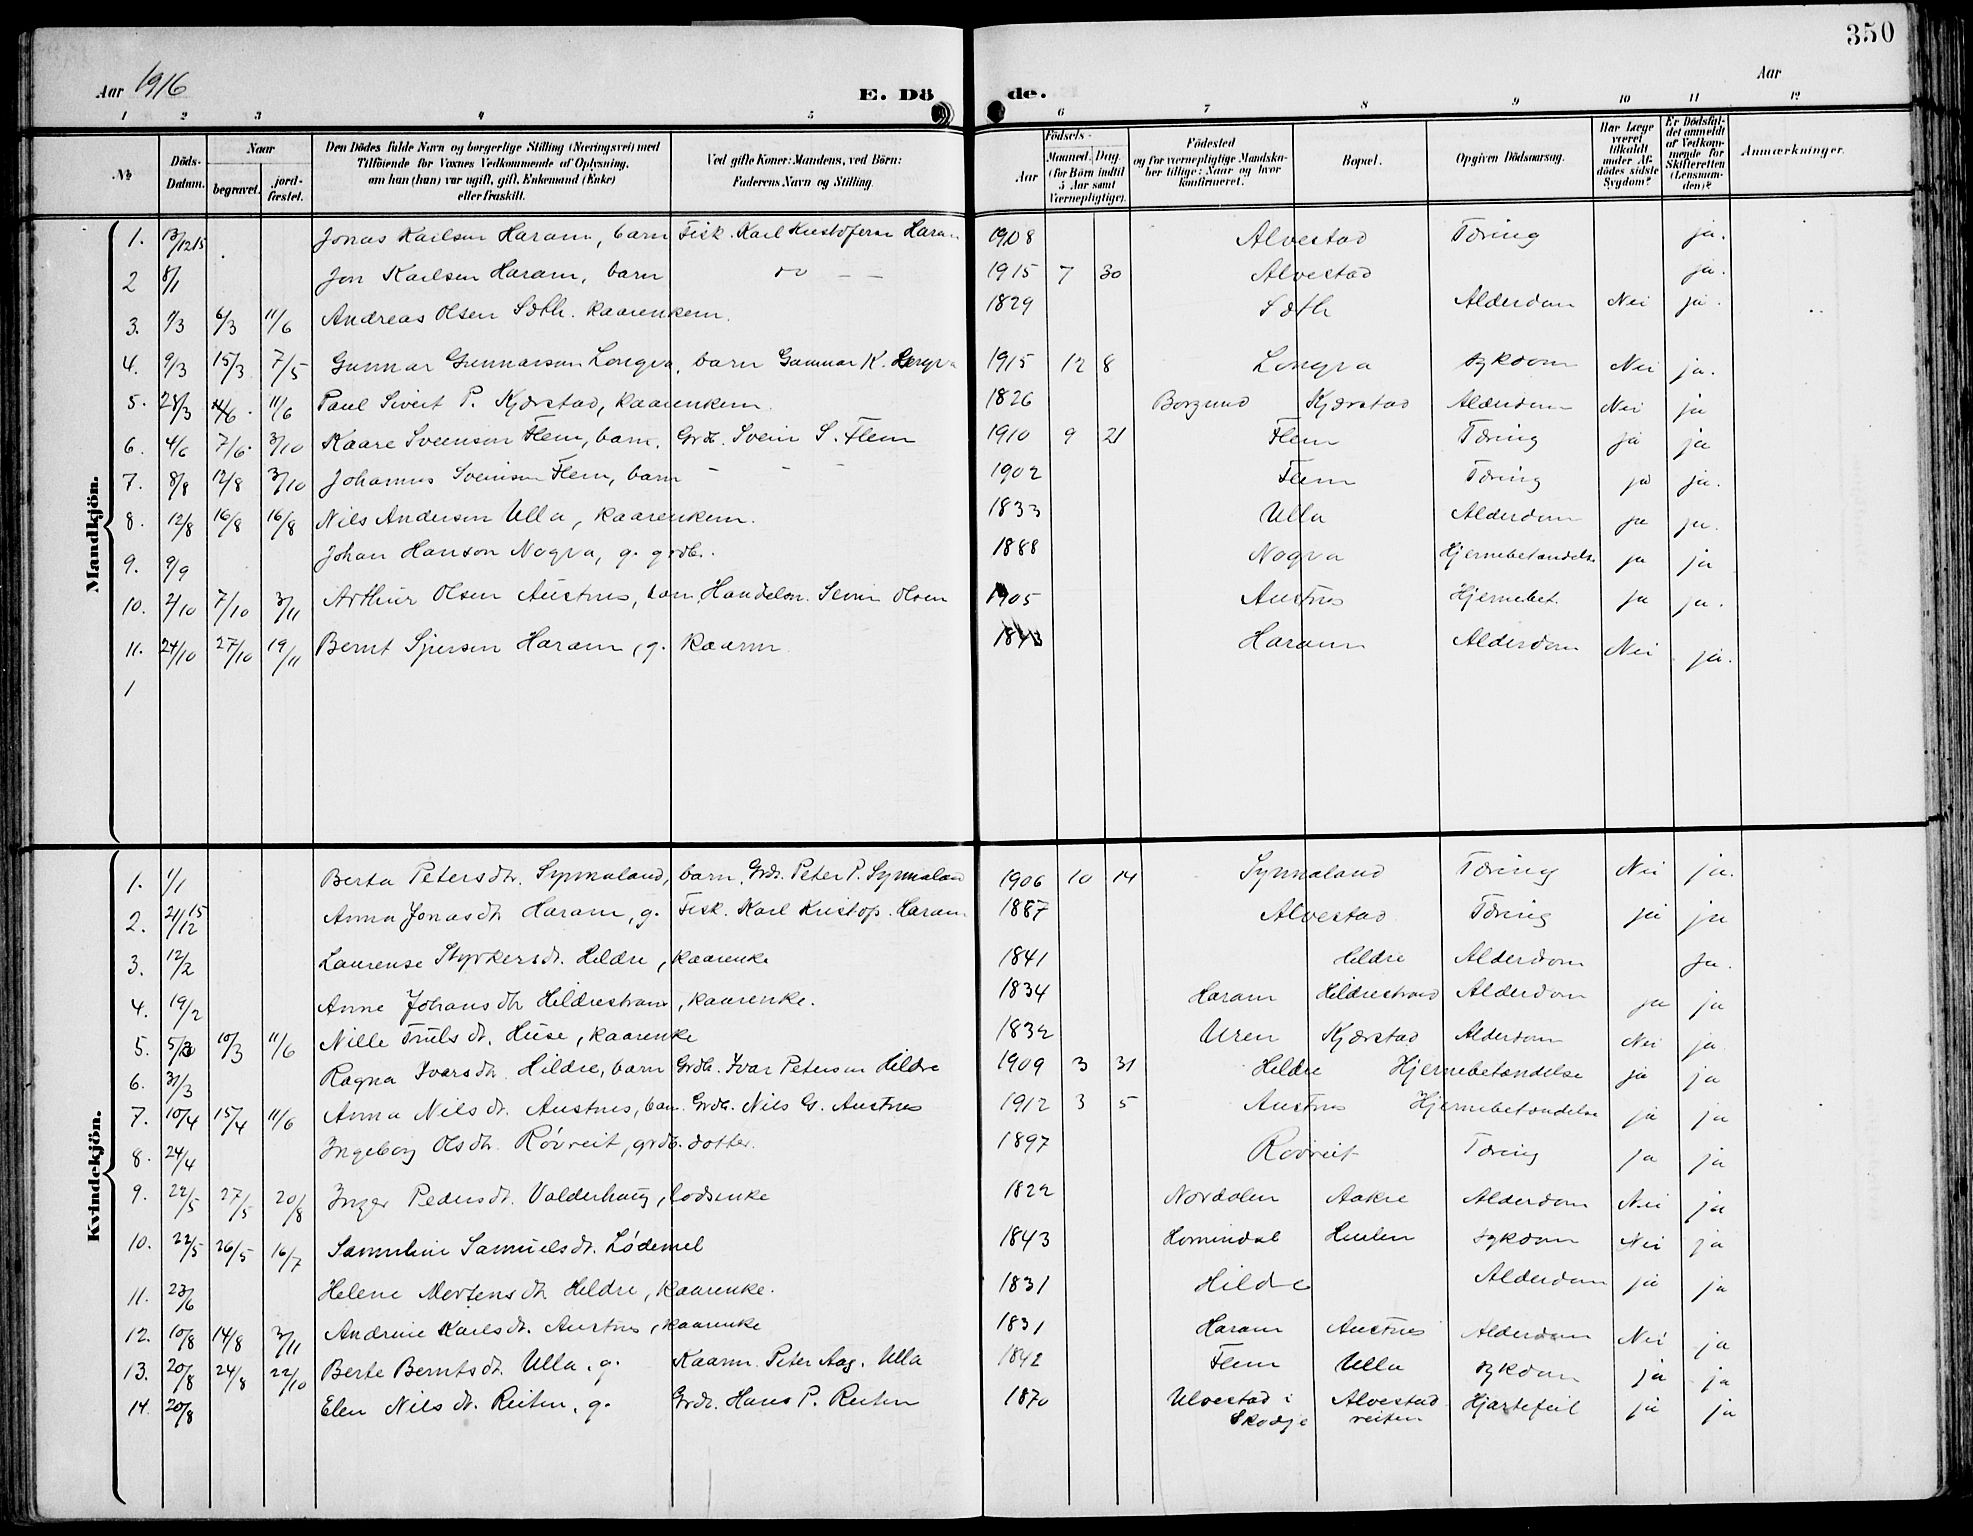 350
Aar 1916
E. Döde.
Aar
1 2 3 4 5 6 7 8 9 10 11 12
№
Döds-Datum.
Naar
begravet.
jord-fæstet.
Den Dödes fulde Navn og borgerlige Stilling (Næringsvei) med Tilföiende for Voxnes Vedkommende af Oplysning, om han (hun) var ugift, gift, Enkemand (Enke) eller fraskilt.
Ved gifte Koner: Mandens, ved Börn: Faderens Navn og Stilling.
Födsels-
Aar
Maaned. Dag.
(for Börn indtil 5 Aar samt Værnepligtige).
Födested og for værnepligtige Mandskaber tillige: Naar og hvor konfirmeret.
Bopæl.
Opgiven Dödsaarsag.
Har Læge været tilkaldt under Afdödes sidste Sygdom?
Er Dödsfaldet anmeldt af Vedkommende for Skifteretten (Lensmanden)?
Anmærkninger.
Mandkjön.
1. 13/12 15 Jonas Karlsen Haram, barn Fisk. Karl Kristofersen Haram 1908 Alvestad Tæring ja.
2 8/1 Jon Karlsen Haram, barn 1915 7 30 Alvestad ja.
3. 1/3 6/3 11/6 Andreas Olsen Sæth. kaarenkem. 1829 Sæth Alderdom Nei ja.
4. 9/3 15/3 7/5 Gunnar Gunnarson Longva, barn Gunnar K. Longva 1915 12 8 Longva sykdom Nei ja.
5. 24/3 11/6 Paul Sivert P. Kjærstad, kaarenkem. 1826 Borgund Kjærstad Alderdom Nei ja
6. 4/6 7/6. 3/10 Kaare Sveenson Flem, barn. Grdb. Svein S. Flem 1910 9 21 Flem Tæring ja ja
7. 8/8 12/8 3/10 Johannes Sveinson Flem, barn - - - 1902 Flem Tæring ja ja.
8. 12/8 16/8 16/8 Nils Andersen Ulla, kaarenkem. 1833 Ulla Alderdom ja ja.
9. 9/9 Johan Hanson Nogva, g. grdb. 1888 Nogva Hjernebetændelse ja ja
10. 2/10 7/10 3/11 Arthur Olsen Austnes, barn, Handelsm. Olsen 1905 Austnes Hjernebet. ja ja.
11. 24/10 27/10 19/11 Bernt Haram, g. kaarm. Haram Alderdom Nei ja.
1
Kvindekjön.
1. 1/1 Berta Petersdtr. Synnaland, barn. Grdb. Peter P. Synnaland 1906 10 14 Synnaland Tæring Nei ja.
2. 21/12 15 Anna Jonasdtr Haram, g. Fisk. Karl Kristof. Haram 1887 Alvestad Tæring ja ja
3. 12/2 Laurense Styrkersdt. Hildre, kaarenke 1841 Hildre Alderdom ja.
4. 19/2 Anne Johansdtr Hildrestrand, kaarenke. 1834 Haram Hildrestrand Alderdom ja ja
5. 5/3 10/3 11/6 Nille Trulsdt. Huse, kaarenke 1832 Uren Kjærstad Alderdom Nei ja.
6. 31/3 Ragna Ivarsdtr. Hildre, barn Grdb. Ivar Petersen Hildre 1909 3 31 Hildre Hjernebetændelse ja ja
7. 10/4 15/4 11/6 Anna Nilsdt. Austnes, barn. Grdb. Nils G. Austnes 1912 3 5 Austnes Hjernebetændelse ja ja
8. 24/4 Ingeborg Olsdtr. Røvreit, grdb. dotter. 1897 Røvreit Tæring ja ja
9. 22/5 27/5 20/8 Inger Pedersdt. Valderhaug, lodsenke 1822 Norddalen Aakre Alderdom Nei ja
10. 22/5 26/5 16/7 Samuline Samuelsdt. Lødemel 1843 Hornindal sykdom Nei ja
11. 23/6 Helene Mortensdtr Hildre, kaarenke. 1831 Hildre Alderdom ja ja
12. 10/8 14/8 3/11 Andrine Karlsdt. Austnes, kaarenke 1831 Haram Austnes Alderdom Nei ja
13. 20/8 24/8 22/10 Berte Berntsdtr. Ulla. g. Kaarm. Peter Aag. Ulla 1842 Flem Ulla sykdom ja ja
14. 20/8 Elen Nilsdt. Reiten. g. Grdb. Hans P. Reiten 1870 Ulvestad i Skodje Alvestad reiten Hjartefeil ja ja